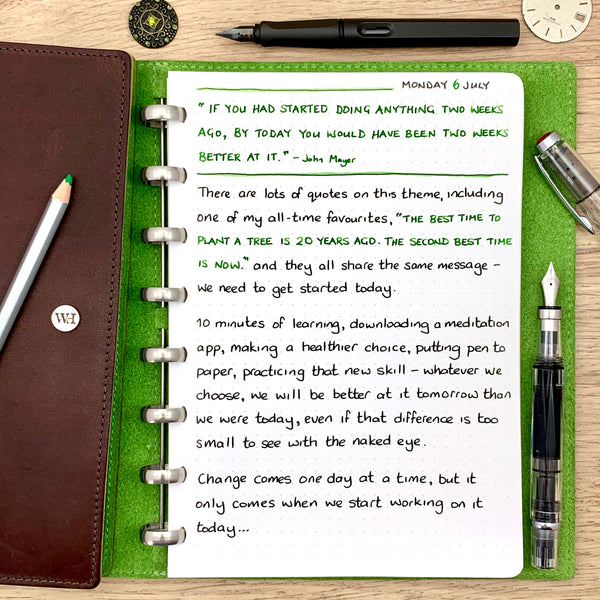 MONDAY 6 JULY
"IF YOU HAD STARTED DOING ANYTHING TWO WEEKS
AGO, BY TODAY YOU WOULD HAVE BEEN TWO WEEKS
BETTER AT IT." - John Mayer
There are lots of quotes on this theme, including
one of my all-time favourites, "THE BEST TIME TO
PLANT A TREE IS 20 YEARS AGO. THE SECOND BEST TIME
IS NOW." and they all share the same message -
we need to get started today.
10 minutes of learning, downloading a meditation
app, making a healthier choice, putting pen to
paper, practicing that new skill - whatever we
choose, we will be better at it tomorrow than
we were today, even if that difference is too
small to see with the naked eye.
Change comes one day at a time, but it
only comes when we start working on it
today...